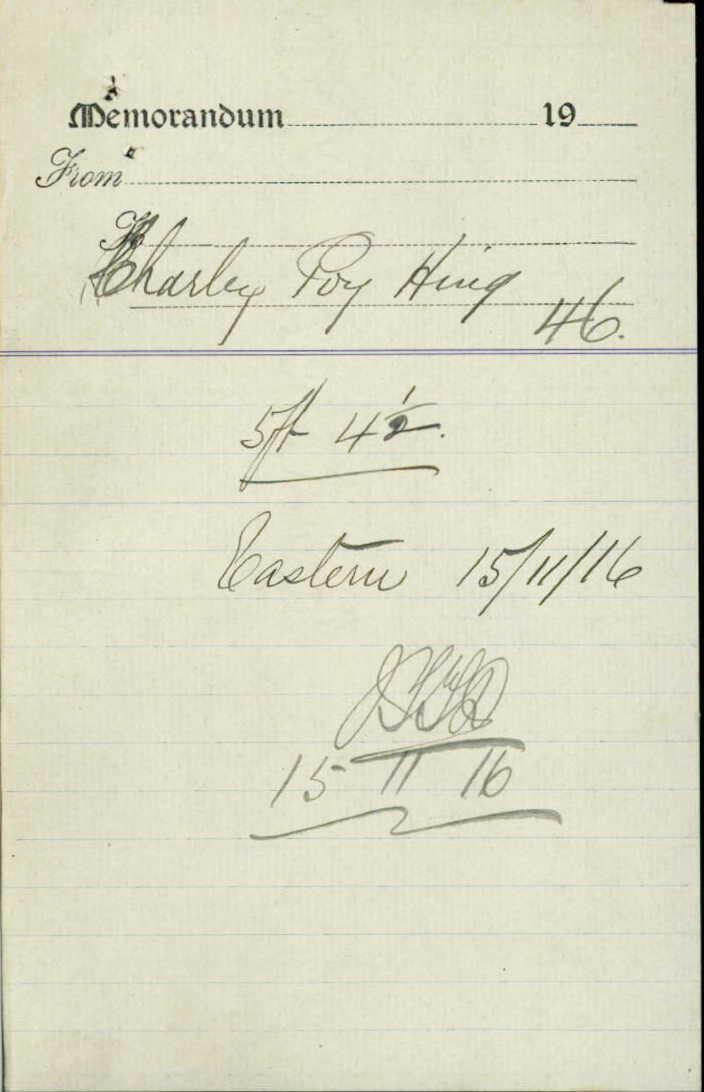 Memorandum 19
From
To
Charley Poy Hing
46.
5ft 4½.
Eastern 15/11/16
15 11 16